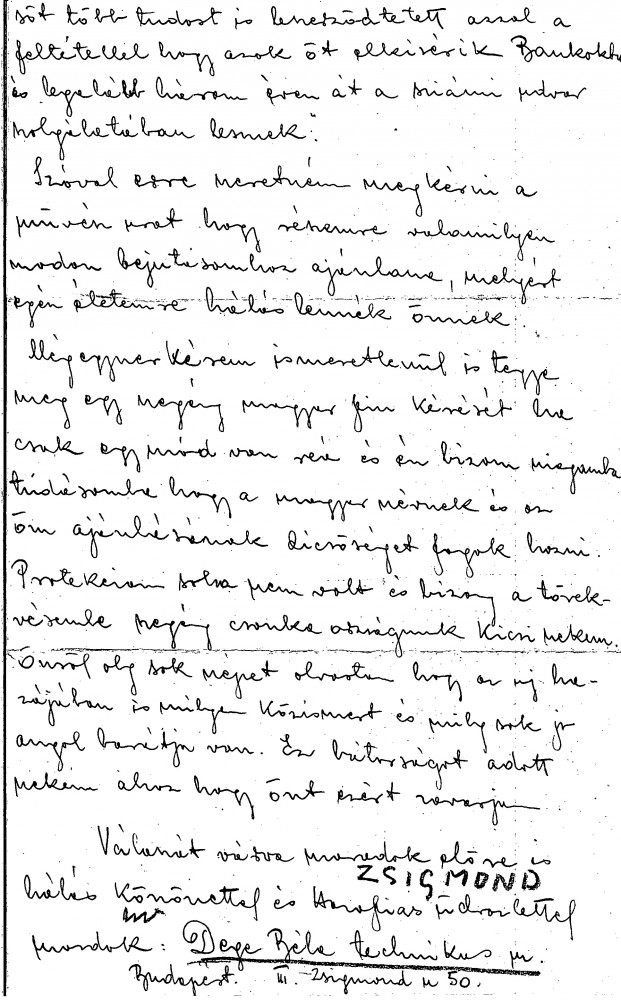 sőt több tudóst is leszerződtetett azzal a
feltétellel hogy azok őt elkisérik Bankokba
és legalább három éven át a sziámi udvar
szolgálatában lesznek".
Szóval erre szeretném megkérni a
művész urat hogy részemre valamilyen
modon bejutásomhoz ajánlana, melyért
egész életemre hálás lennék önnek.
Mégegyszer kérem ismeretlenül is tegye
meg egy szegény magyar fiu kérését ha
csak egy mód van reá és én bizom magamba
tudásomba hogy a magyar névnek és az
ön ajánlásának dicsőséget fogok hozni.
Protekcióm soha nem volt és bizony a törek-
vésembe szegény csonka országunk kicsi nekem.
Önről oly sok szépet olvastam hogy az uj ha-
zájában is milyen közismert és mily sok jó
angol barátja van. Ez bátorságot adott
nekem ahoz hogy önt ezért zavarjam
Válaszát várva maradok előre is
ZSIGMOND
hálás köszönettel és Hazafias üdvözlettel
maradok: Dege Béla technikus
Budapest. III. Zsigmond u 50.